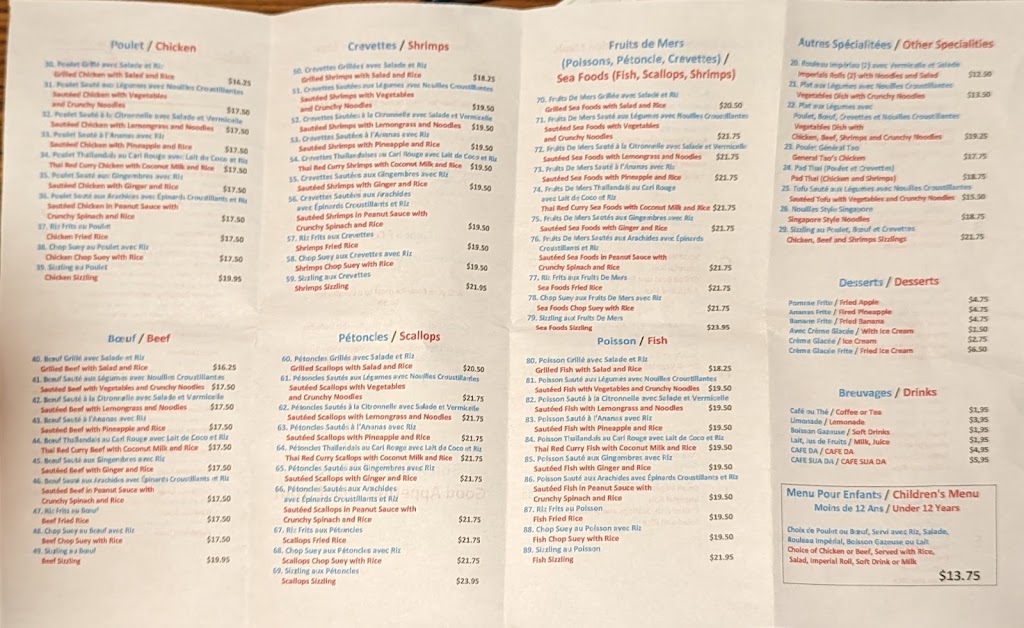 Poulet / Chicken
30. Poulet Grillé avec Salade et Riz
Grilled Chicken with Salad and Rice $16.25
31. Poulet Sauté aux Légumes avec Nouilles Croustillantes
Sautéed Chicken with Vegetables
and Crunchy Noodles $17.50
32. Poulet Sauté à la Citronnelle avec Salade et Vermicelle
Sautéed Chicken with Lemongrass and Noodles $17.50
33. Poulet Sauté à l'Ananas avec Riz
Sautéed Chicken with Pineapple and Rice $17.50
34. Poulet Thaïlandais au Cari Rouge avec Lait de Coco et Riz
Thai Red Curry Chicken with Coconut Milk and Rice $17.50
35. Poulet Sauté aux Gingembres avec Riz
Sautéed Chicken with Ginger and Rice $17.50
36. Poulet Sauté aux Arachides avec Épinards Croustillants et Riz
Sautéed Chicken in Peanut Sauce with
Crunchy Spinach and Rice $17.50
37. Riz Frits au Poulet
Chicken Fried Rice $17.50
38. Chop Suey au Poulet avec Riz
Chicken Chop Suey with Rice $17.50
39. Sizzling au Poulet
Chicken Sizzling $19.95
Bœuf / Beef
40. Bœuf Grillé avec Salade et Riz
Grilled Beef with Salad and Rice $16.25
41. Bœuf Sauté aux Légumes avec Nouilles Croustillantes
Sautéed Beef with Vegetables and Crunchy Noodles $17.50
42. Bœuf Sauté à la Citronnelle avec Salade et Vermicelle
Sautéed Beef with Lemongrass and Noodles $17.50
43. Bœuf Sauté à l'Ananas avec Riz
Sautéed Beef with Pineapple and Rice $17.50
44. Bœuf Thaïlandais au Cari Rouge avec Lait de Coco et Riz
Thai Red Curry Beef with Coconut Milk and Rice $17.50
45. Bœuf Sauté aux Gingembres avec Riz
Sautéed Beef with Ginger and Rice $17.50
46. Bœuf Sauté aux Arachides avec Épinards Croustillants et Riz
Sautéed Beef in Peanut Sauce with
Crunchy Spinach and Rice $17.50
47. Riz Frits au Bœuf
Beef Fried Rice $17.50
48. Chop Suey au Bœuf avec Riz
Beef Chop Suey with Rice $17.50
49. Sizzling au Bœuf
Beef Sizzling $19.95
Crevettes / Shrimps
50. Crevettes Grillées avec Salade et Riz
Grilled Shrimps with Salad and Rice $18.25
51. Crevettes Sautées aux Légumes avec Nouilles Croustillantes
Sautéed Shrimps with Vegetables
and Crunchy Noodles $19.50
52. Crevettes Sautées à la Citronnelle avec Salade et Vermicelle
Sautéed Shrimps with Lemongrass and Noodles $19.50
53. Crevettes Sautées à l'Ananas avec Riz
Sautéed Shrimps with Pineapple and Rice $19.50
54. Crevettes Thaïlandaises au Cari Rouge avec Lait de Coco et Riz
Thai Red Curry Shrimps with Coconut Milk and Rice $19.50
55. Crevettes Sautées aux Gingembres avec Riz
Sautéed Shrimps with Ginger and Rice $19.50
56. Crevettes Sautées aux Arachides
avec Épinards Croustillants et Riz
Sautéed Shrimps in Peanut Sauce with
Crunchy Spinach and Rice $19.50
57. Riz Frits aux Crevettes
Shrimps Fried Rice $19.50
58. Chop Suey aux Crevettes avec Riz
Shrimps Chop Suey with Rice $19.50
59. Sizzling aux Crevettes
Shrimps Sizzling $21.95
Pétoncles / Scallops
60. Pétoncles Grillés avec Salade et Riz
Grilled Scallops with Salad and Rice $20.50
61. Pétoncles Sautés aux Légumes avec Nouilles Croustillantes
Sautéed Scallops with Vegetables
and Crunchy Noodles $21.75
62. Pétoncles Sautés à la Citronnelle avec Salade et Vermicelle
Sautéed Scallops with Lemongrass and Noodles $21.75
63. Pétoncles Sautés à l'Ananas avec Riz
Sautéed Scallops with Pineapple and Rice $21.75
64. Pétoncles Thaïlandais au Cari Rouge avec Lait de Coco et Riz
Thai Red Curry Scallops with Coconut Milk and Rice $21.75
65. Pétoncles Sautés aux Gingembres avec Riz
Sautéed Scallops with Ginger and Rice $21.75
66. Pétoncles Sautés aux Arachides
avec Épinards Croustillants et Riz
Sautéed Scallops in Peanut Sauce with
Crunchy Spinach and Rice $21.75
67. Riz Frits aux Pétoncles
Scallops Fried Rice $21.75
68. Chop Suey aux Pétoncles avec Riz
Scallops Chop Suey with Rice $21.75
69. Sizzling aux Pétoncles
Scallops Sizzling $23.95
Fruits de Mers
(Poissons, Pétoncle, Crevettes) /
Sea Foods (Fish, Scallops, Shrimps)
70. Fruits De Mers Grillés avec Salade et Riz
Grilled Sea Foods with Salad and Rice $20.50
71. Fruits De Mers Sauté aux Légumes avec Nouilles Croustillantes
Sautéed Sea Foods with Vegetables
and Crunchy Noodles $21.75
72. Fruits De Mers Sauté à la Citronnelle avec Salade et Vermicelle
Sautéed Sea Foods with Lemongrass and Noodles $21.75
73. Fruits De Mers Sauté à l'Ananas avec Riz
Sautéed Sea Foods with Pineapple and Rice $21.75
74. Fruits De Mers Thaïlandais au Cari Rouge
avec Lait de Coco et Riz
Thai Red Curry Sea Foods with Coconut Milk and Rice $21.75
75. Fruits De Mers Sautés aux Gingembres avec Riz
Sautéed Sea Foods with Ginger and Rice $21.75
76. Fruits De Mers Sautés aux Arachides avec Épinards
Croustillants et Riz
Sautéed Sea Foods in Peanut Sauce with
Crunchy Spinach and Rice $21.75
77. Riz Frits aux Fruits De Mers
Sea Foods Fried Rice $21.75
78. Chop Suey aux Fruits De Mers avec Riz
Sea Foods Chop Suey with Rice $21.75
79. Sizzling aux Fruits De Mers
Sea Foods Sizzling $23.95
Poisson / Fish
80. Poisson Grillé avec Salade et Riz
Grilled Fish with Salad and Rice $18.25
81. Poisson Sauté aux Légumes avec Nouilles Croustillantes
Sautéed Fish with Vegetables and Crunchy Noodles $19.50
82. Poisson Sauté à la Citronnelle avec Salade et Vermicelle
Sautéed Fish with Lemongrass and Noodles $19.50
83. Poisson Sauté à l'Ananas avec Riz
Sautéed Fish with Pineapple and Rice $19.50
84. Poisson Thaïlandais au Cari Rouge avec Lait de Coco et Riz
Thai Red Curry Fish with Coconut Milk and Rice $19.50
85. Poisson Sauté aux Gingembres avec Riz
Sautéed Fish with Ginger and Rice $19.50
86. Poisson Sauté aux Arachides avec Épinards Croustillants et Riz
Sautéed Fish in Peanut Sauce with
Crunchy Spinach and Rice $19.50
87. Riz Frits au Poisson
Fish Fried Rice $19.50
88. Chop Suey au Poisson avec Riz
Fish Chop Suey with Rice $19.50
89. Sizzling au Poisson
Fish Sizzling $21.95
Autres Spécialitées / Other Specialities
20. Rouleau Impérial (2) avec Vermicelle et Salade
Imperials Rolls (2) with Noodles and Salad $12.50
21. Plat aux Légumes avec Nouilles Croustillantes
Vegetables Dish with Crunchy Noodles $13.50
22. Plat aux Légumes avec
Poulet, Bœuf, Crevettes et Nouilles Croustillantes
Vegetables Dish with
Chicken, Beef, Shrimps and Crunchy Noodles $19.25
23. Poulet Général Tao
General Tao's Chicken $17.75
24. Pad Thaï (Poulet et Crevettes)
Pad Thaï (Chicken and Shrimps) $18.75
25. Tofu Sauté aux Légumes avec Nouilles Croustillantes
Sautéed Tofu with Vegetables and Crunchy Noodles $15.50
26. Nouilles Style Singapore
Singapore Style Noodles $18.75
29. Sizzling au Poulet, Bœuf et Crevettes
Chicken, Beef and Shrimps Sizzlings $21.75
Desserts / Desserts
Pomme Frite / Fried Apple $4.75
Ananas Frite / Fired Pineapple $4.75
Banane Frite / Fried Banana $4.75
Avec Crème Glacée / With Ice Cream $1.50
Crème Glacée / Ice Cream $2.75
Crème Glacée Frite / Fried Ice Cream $6.50
Breuvages / Drinks
Café ou Thé / Coffee or Tea $1,95
Limonade / Lemonade $3,95
Boisson Gazeuse / Soft Drinks $1,95
Lait, Jus de Fruits / Milk, Juice $1,95
CAFE DA / CAFE DA $4,95
CAFE SUA DA / CAFE SUA DA $5,95
Menu Pour Enfants / Children's Menu
Moins de 12 Ans / Under 12 Years
Choix de Poulet ou Bœuf, Servi avec Riz, Salade,
Rouleau Impérial, Boisson Gazeuse ou Lait
Choice of Chicken or Beef, Served with Rice,
Salad, Imperial Roll, Soft Drink or Milk
$13.75